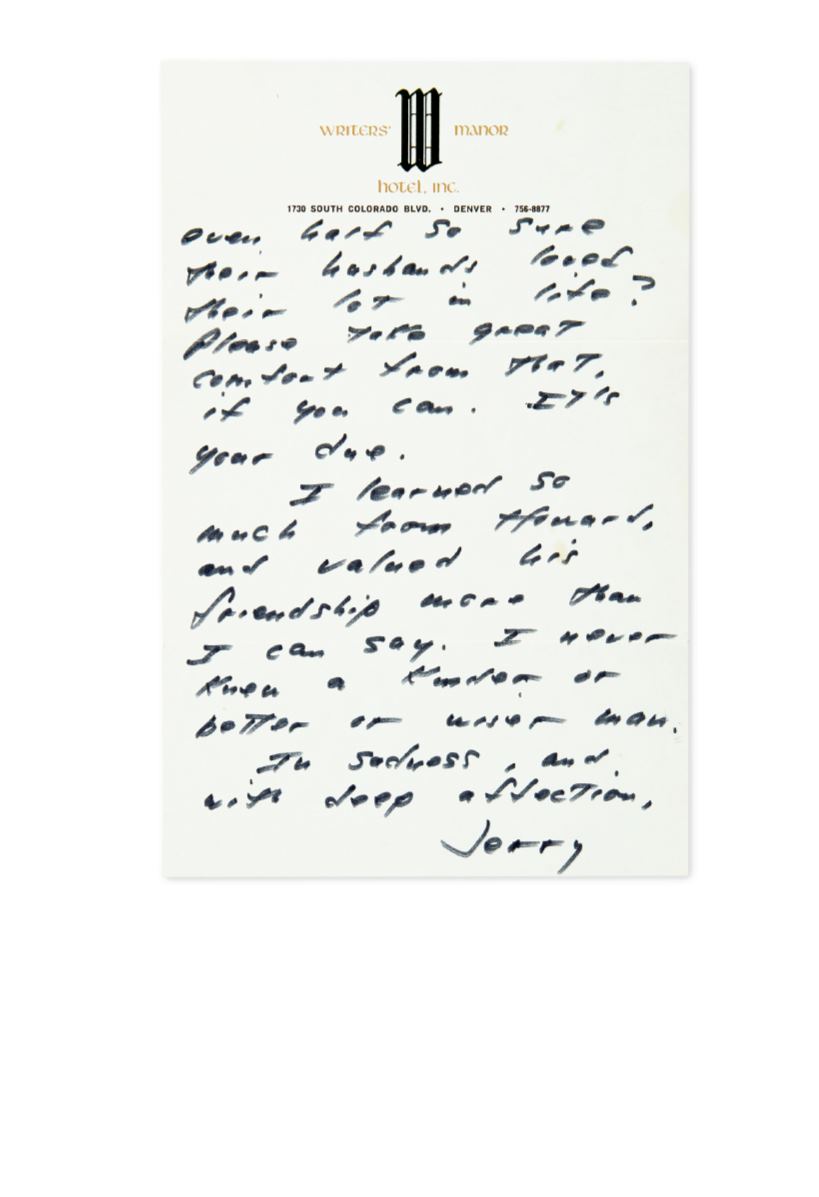 WRITERS' MANOR
hotel, inc.
1730 SOUTH COLORADO BLVD. • DENVER • 756-8877
even half so sure
their husbands loved
their lot in life?
Please take great
comfort from that,
if you can. It's
your due.
I learned so
much from Howard,
and valued his
friendship more than
I can say. I never
knew a kinder or
better or wiser man.
In sadness, and
with deep affection,
Jerry